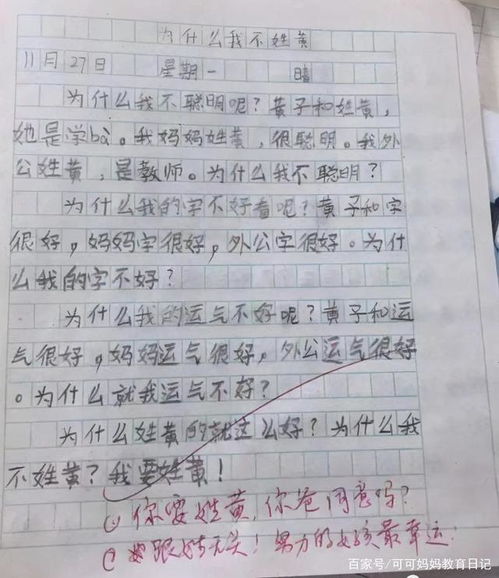 为什么我不姓黄
11月27日 星期一 晴
为什么我不聪明呢？黄子和姓黄，
她是学bà。我妈妈姓黄，很聪明。我外
公姓黄，是教师。为什么我不聪明？
为什么我的字不好看呢？黄子和字
很好，妈妈字很好，外公字很好。为什
么我的字不好？
为什么我的运气不好呢？黄子和运
气很好，妈妈运气很好，外公运气很好
。为什么就我运气不好？
为什么姓黄的就这么好？为什么我
不姓黄？我要姓黄！
你要姓黄，你爸同意吗？
跟姓无关！努力的女孩最幸运！
百家号/可可妈妈教育日记